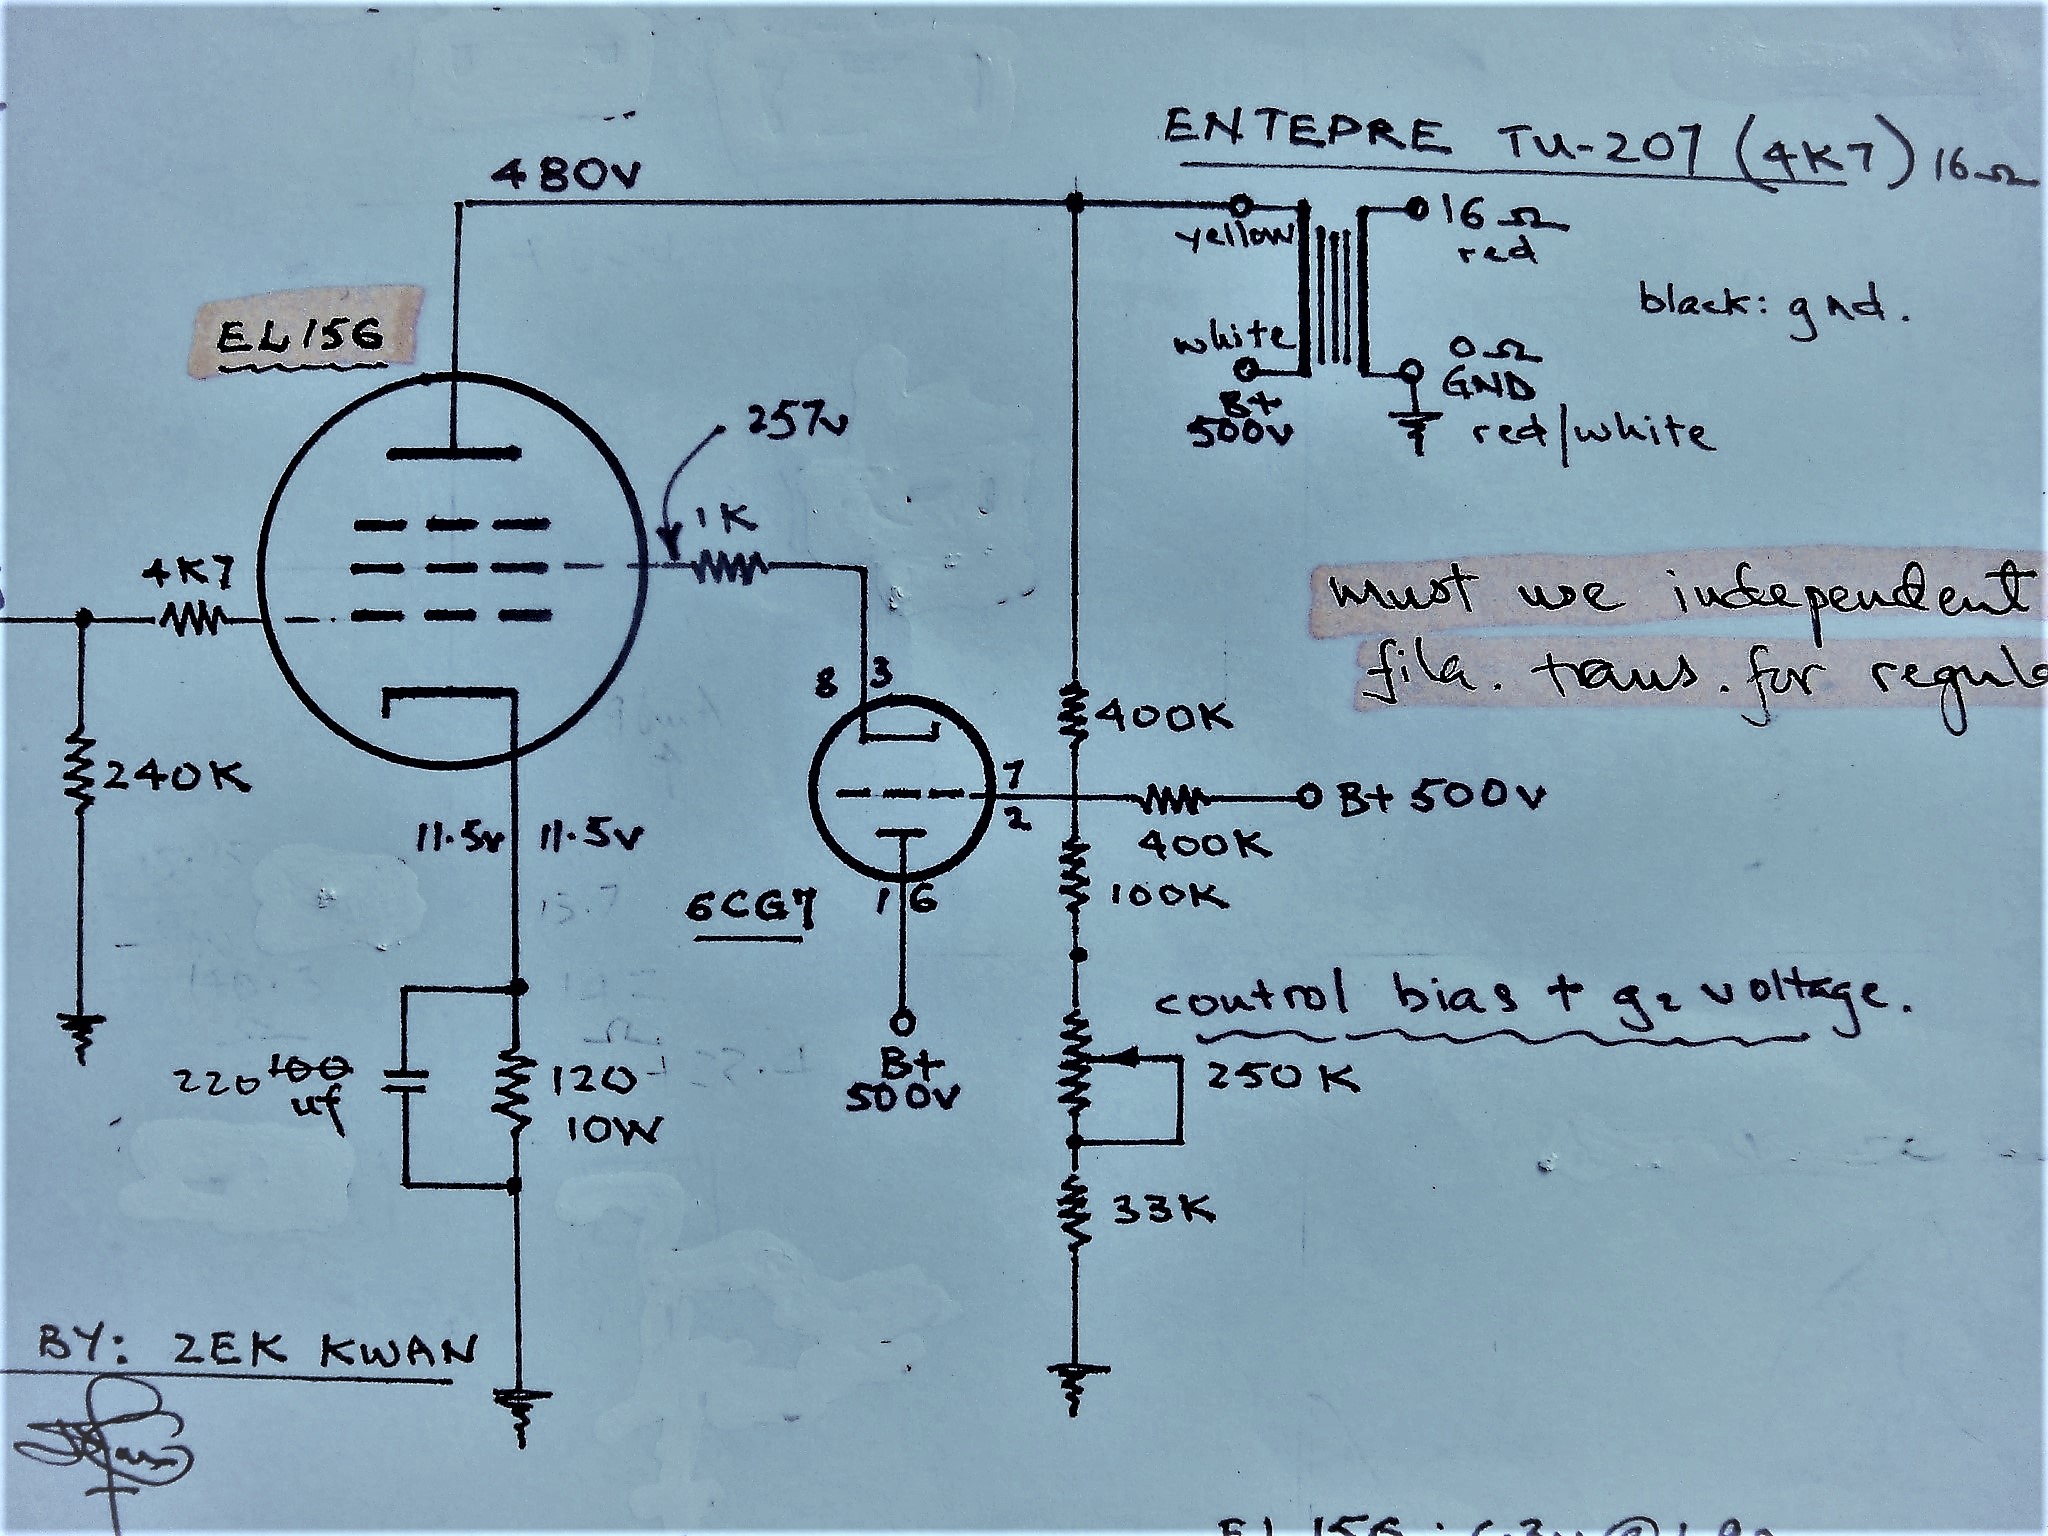 ENTEPRE TU-207 (4K7) 16Ω
480V
yellow
16Ω
red
black: gnd.
EL156
white
B+
500V
0Ω
GND
red/white
257V
1K
4K7
must use independent
fila. trans. for regul
8 3
400K
240K
7
2
B+ 500V
400K
11.5V 11.5V
100K
6CG7
1 6
control bias + g2 voltage.
B+
500V
250K
220 100
uf
120
10W
33K
BY: ZEK KWAN